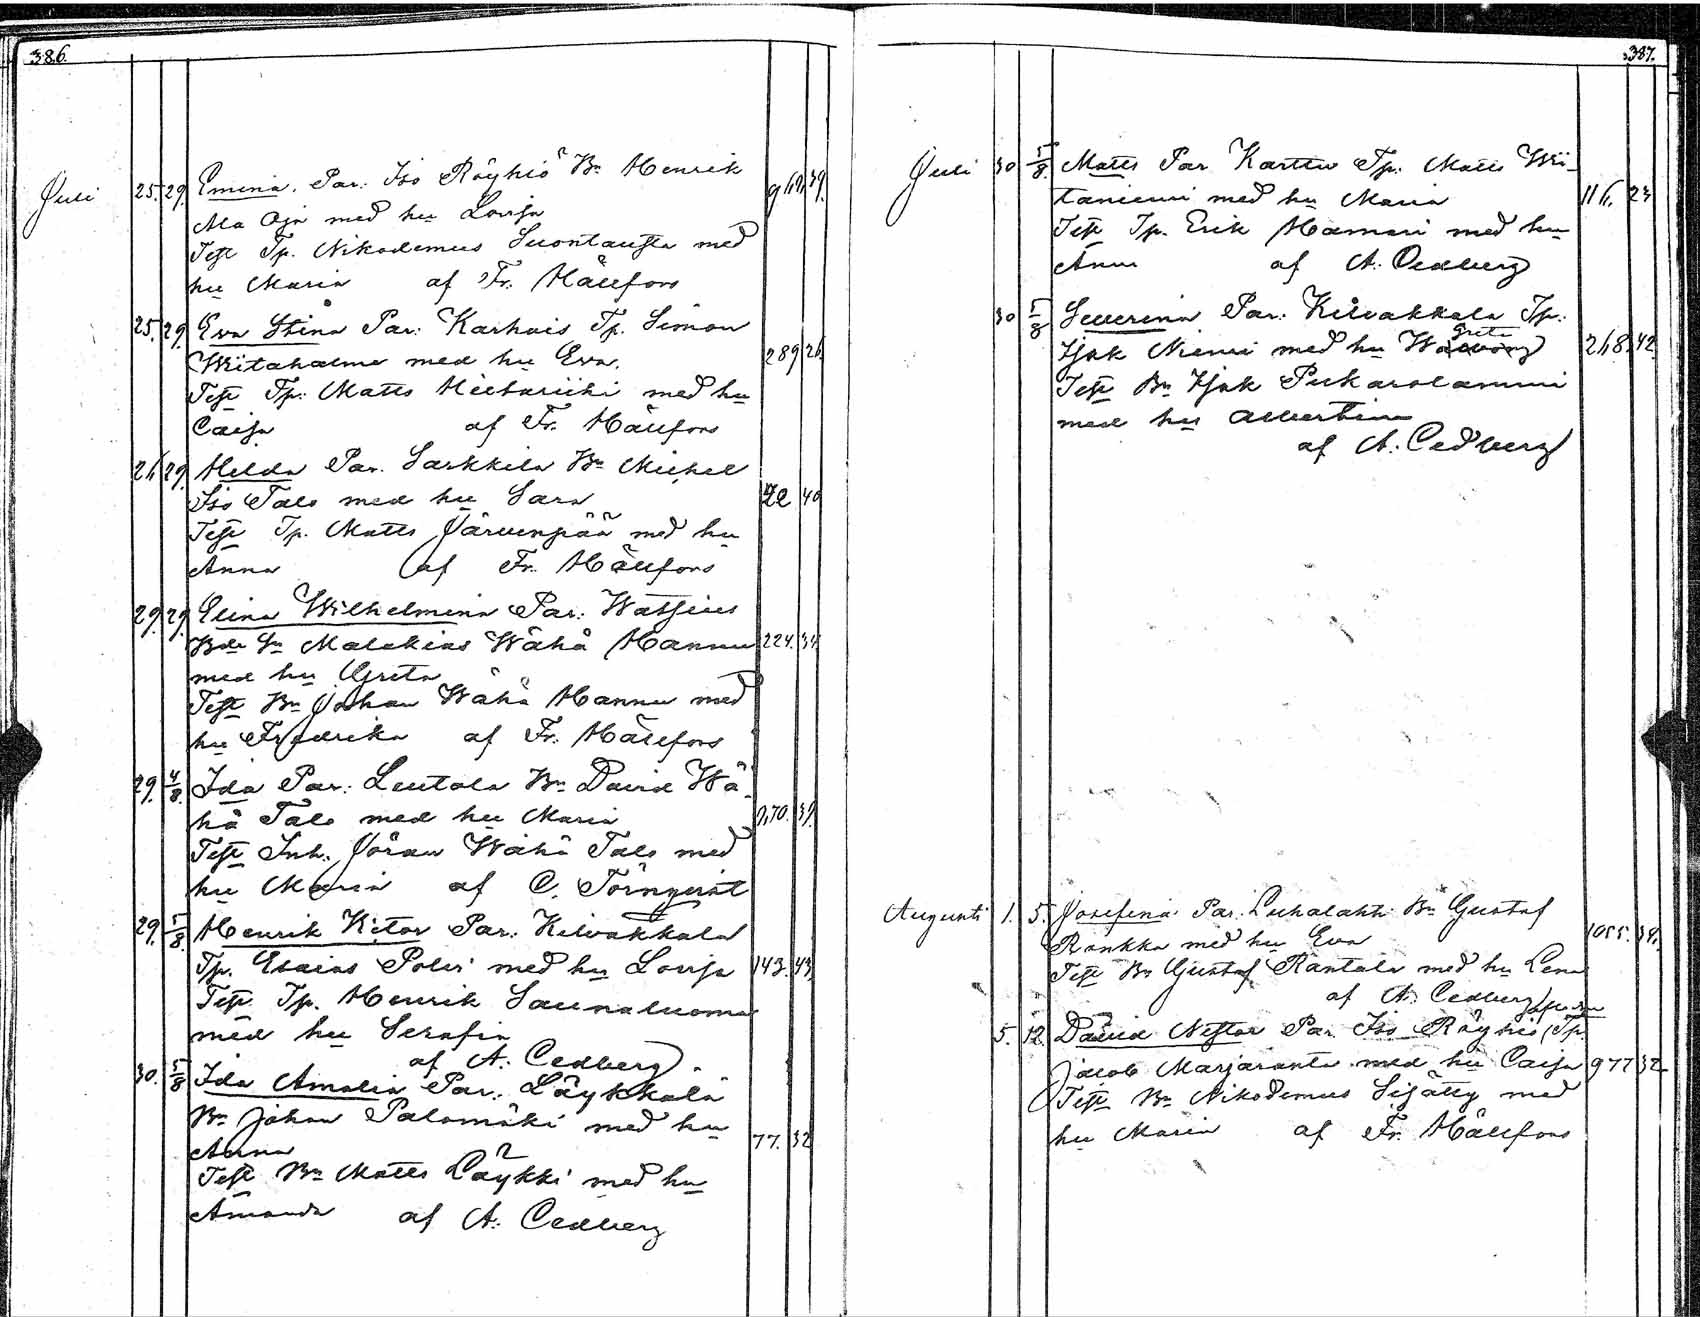 386.
Juli 25. 29. Emina. Par: Iso Röyhiö Bn Henrik
Ala Oja med hu Lovisa 39.
Test Tp. Nikodemus Suontausta med
hu Maria af Fr. Hällfors
25. 29. Eva Stina Par: Karhais Tp. Simon
Wiitahalme med hu Eva. 289 26.
Test Tp: Matts med hu
Caisa af Fr. Hällfors
26 29. Hilda Par. Sarkkila Bn Michel
Iso Talo med hu Sara 22 40
Test Tp. Matts Järvenpää med hu
Anna af Fr. Hällfors
29. 29. Elina Wilhelmina Par: Watjus
Bde Sn Malakias Wähä Hannu 224. 34
med hu Greta
Test Bn Johan Wähä Hannu med
hu Fredrika af Fr. Hällfors
29. 4/8. Ida Par: Leutola Bn David Wä-
hä Talo med hu Maria 39.
Test Inh. Jöran Wähä Talo med
hu Maria af C. Törnqvist
29. 5/8 Henrik Kitor Par: Kilvakkala
Tp. Esaias Polvi med hu Lovisa 143. 43
Test. Tp. Henrik Saunaluoma
med hu Serafia
af A. Cedberg.
30. 5/8 Ida Amalia Par. Läykkälä
Bn Johan Palomäki med hu
Anna 77. 32
Test Bn Matts Läykki med hu
Amanda af A. Cedberg
387.
Juli 30 5/8. Matts Par Karttu Tp. Matts Wii-
taniemi med hu Maria 116. 23
Test Tp. Erik Hamari med hu
Anna af A. Cedberg
30 5/8 Severina Par: Kilvakkala Tp.
Greta
Isak Niemi med hu 268. 42.
Test Bn Isak Pukarolammi
med hu Albertina
af A. Cedberg
Augusti 1. 5. Josefina Par. Luhalahti Bn Gustaf
Rankka med hu Eva 1055. 38.
Test Bn Gustaf Rantala med hu Lena
af A. Cedberg
5. 12. David Nestor Par Iso Röyhiö Tp.
Jacob Marjaranta med hu Caisa 977 32
Test Bn Nikodemus Sijätty med
hu Maria af Fr. Hällfors